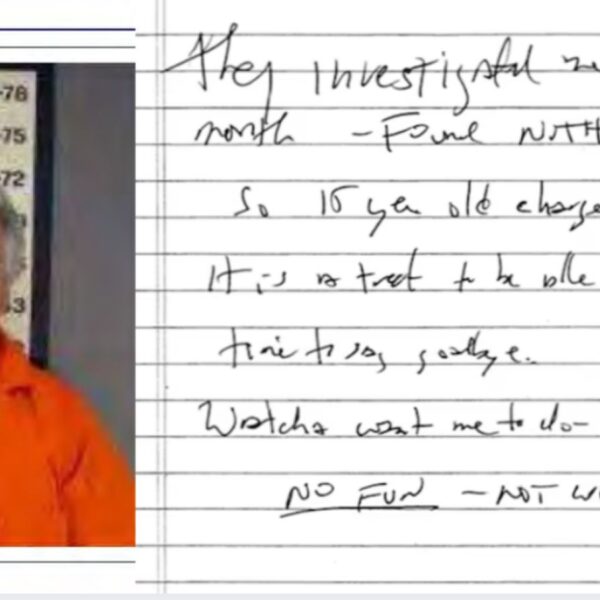 -78
-75
-72
3
They investigated
month - Found NOTH
So year old charge
It is a treat to be able
time to say goodbye.
Watcha want me to do-
NO FUN - NOT W